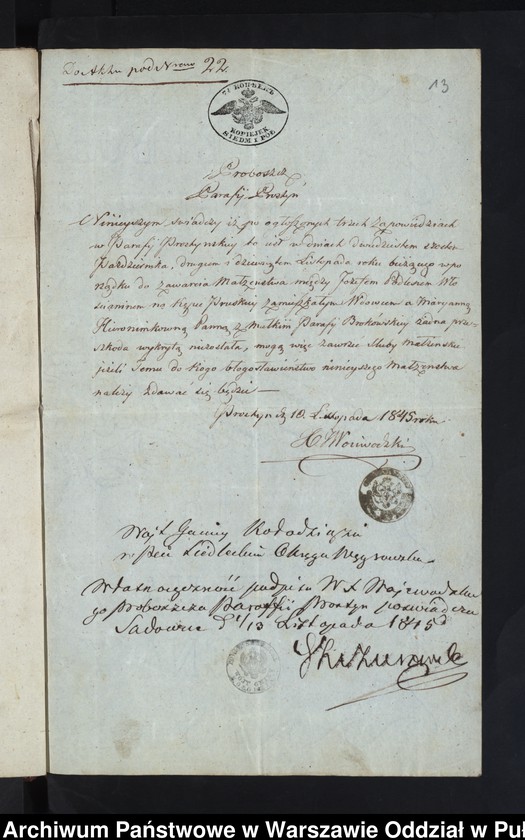 Do Aktu pod Nrem 22
13
7½ КОПѢЕКЪ
KOPIJEK
SIEDM I PÓŁ
Proboszcz
Parafij Prostyn
Niniejszym świadczy iż po ogłoszonych trzech zapowiedziach
w Parafij Prostynskiej to jest w dniach dwudziestem szostem
Pazdziernika, drugiem i dziewiątem Listopada roku bieżącego w po
rządku do zawarcia Małżenstwa między Jozefem
scianinem na zamieszkałym Wdowcem a Maryanną
Hieronimkowną Panną z Małkini Parafij Brokowskiej żadna prze-
szkoda wykrytą niezostała, mogą więc zawrzeć śluby małżenskie
jeżeli Temu do kogo błogosławieństwo niniejszego Małżenstwa
należy zdawać się będzie —
Prostyn d. 10 Listopada 1845 roku
X Woiewodzki
Wojt Gminy Kołodziąża
w Pcie Siedleckim Okręgu Węgrowskim
Własnoręczność podpisu WX Wojewodzkie
go Proboszcza Paraffii Prostyn poswiadcza
Sadowne d. /13 Listopada 1845
Archiwum Państwowe w Warszawie Oddział w Puł